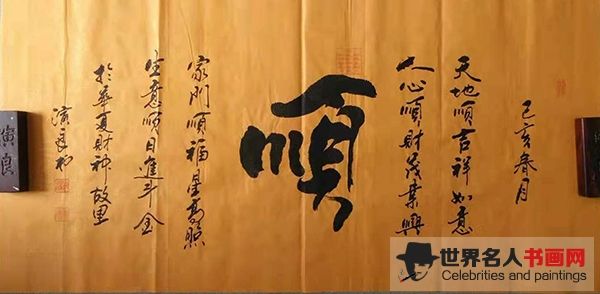 己亥春月
天地順吉祥如意
人心順財茂業興
順
家門順福星高照
生意順日進斗金
於華夏財神故里
寅良
世界名人书画网
Celebrities and paintings